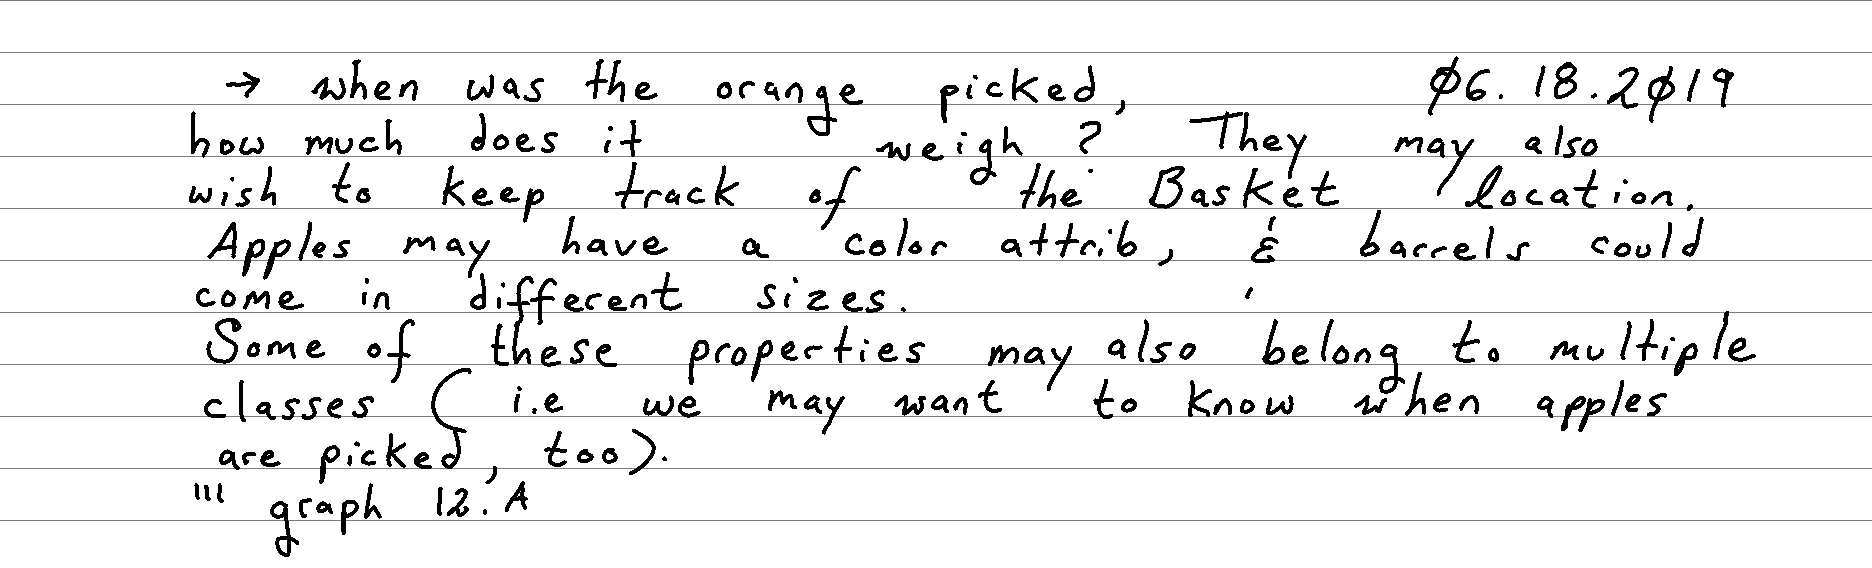 → when was the orange picked, 06.18.2019
how much does it weigh? They may also
wish to keep track of the Basket location.
Apples may have a color attrib, & barrels could
come in different sizes.
Some of these properties may also belong to multiple
classes (i.e we may want to know when apples
are picked, too).
''' graph 12.A